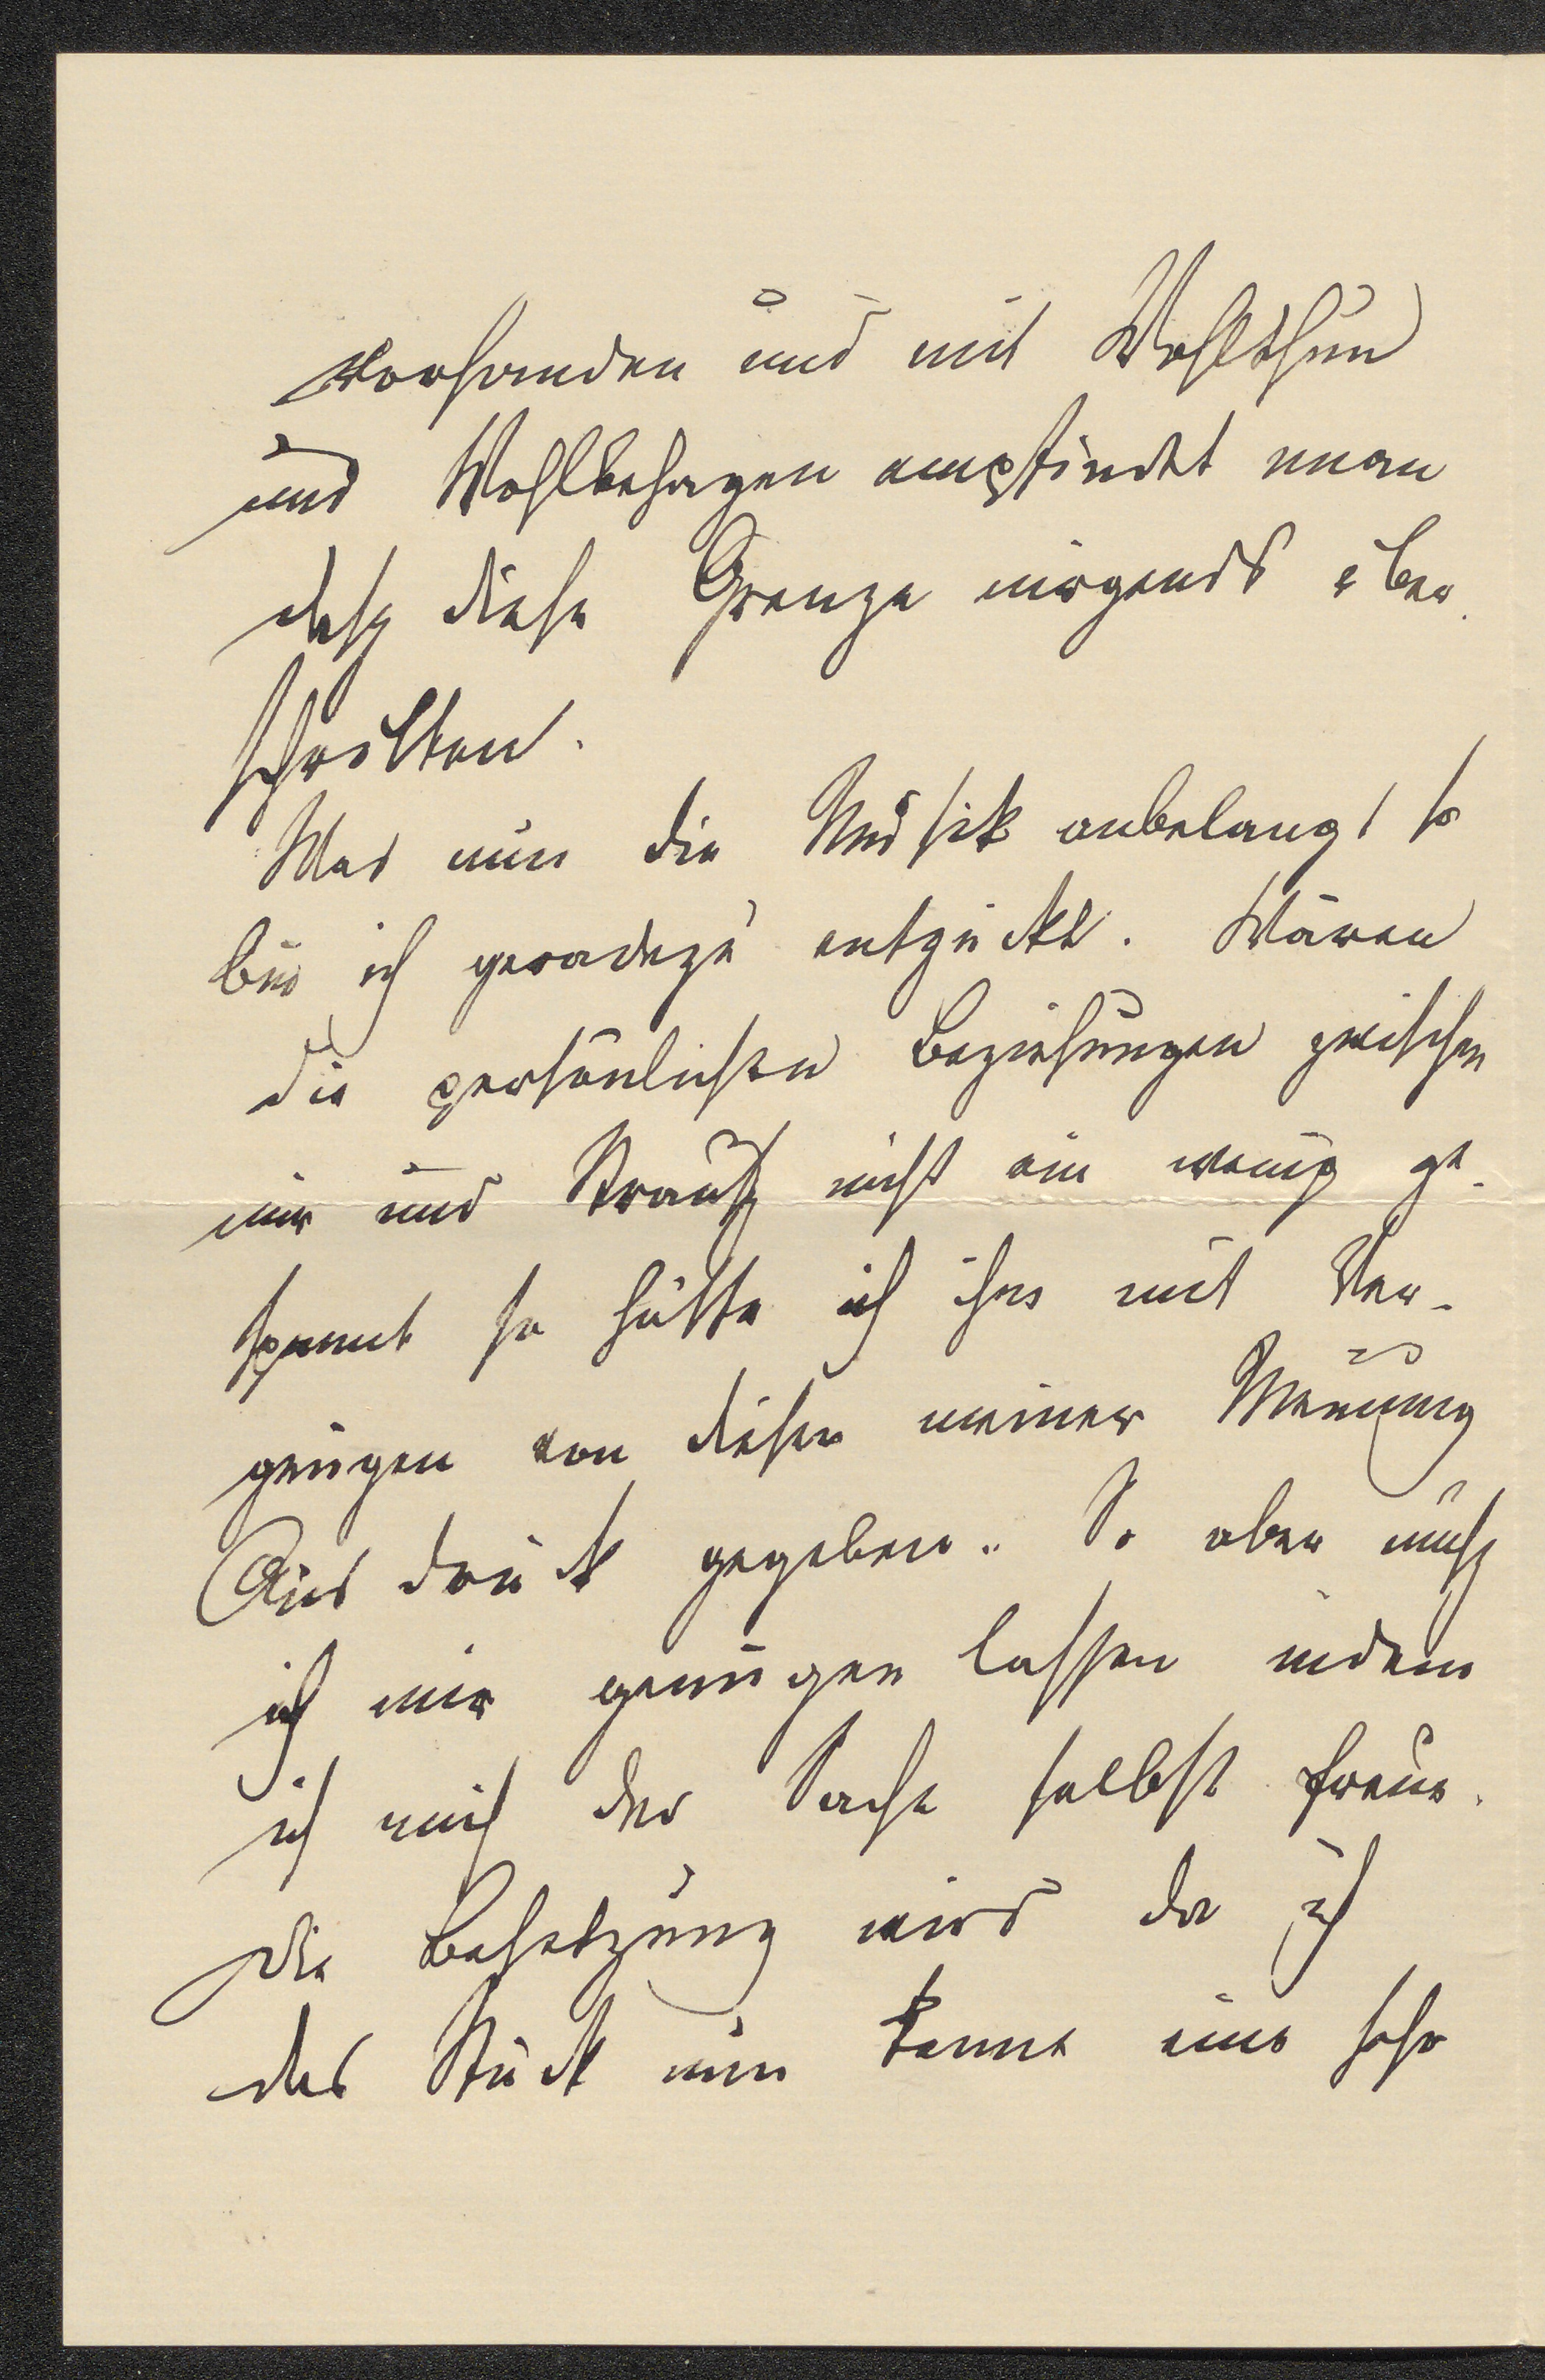 vorhanden und mit Wohlthun
und Wohlbehagen empfindet man
daß diese Grenze nirgends über
schritten.
Was nun die Musik anbelangt so
bin ich geradezu entzückt. Wären
die persönlichen Beziehungen zwischen
mir und Strauß nicht ein wenig ge-
spannt so hätte ich ihm mit Ver-
gnügen von dieser meiner Meinung
Ausdruck gegeben. So aber muß
ich mir genügen lassen indem
ich mich der Sache selbst freue.
Die Besetzung wird da ich
das Stück nun kenne eine sehr